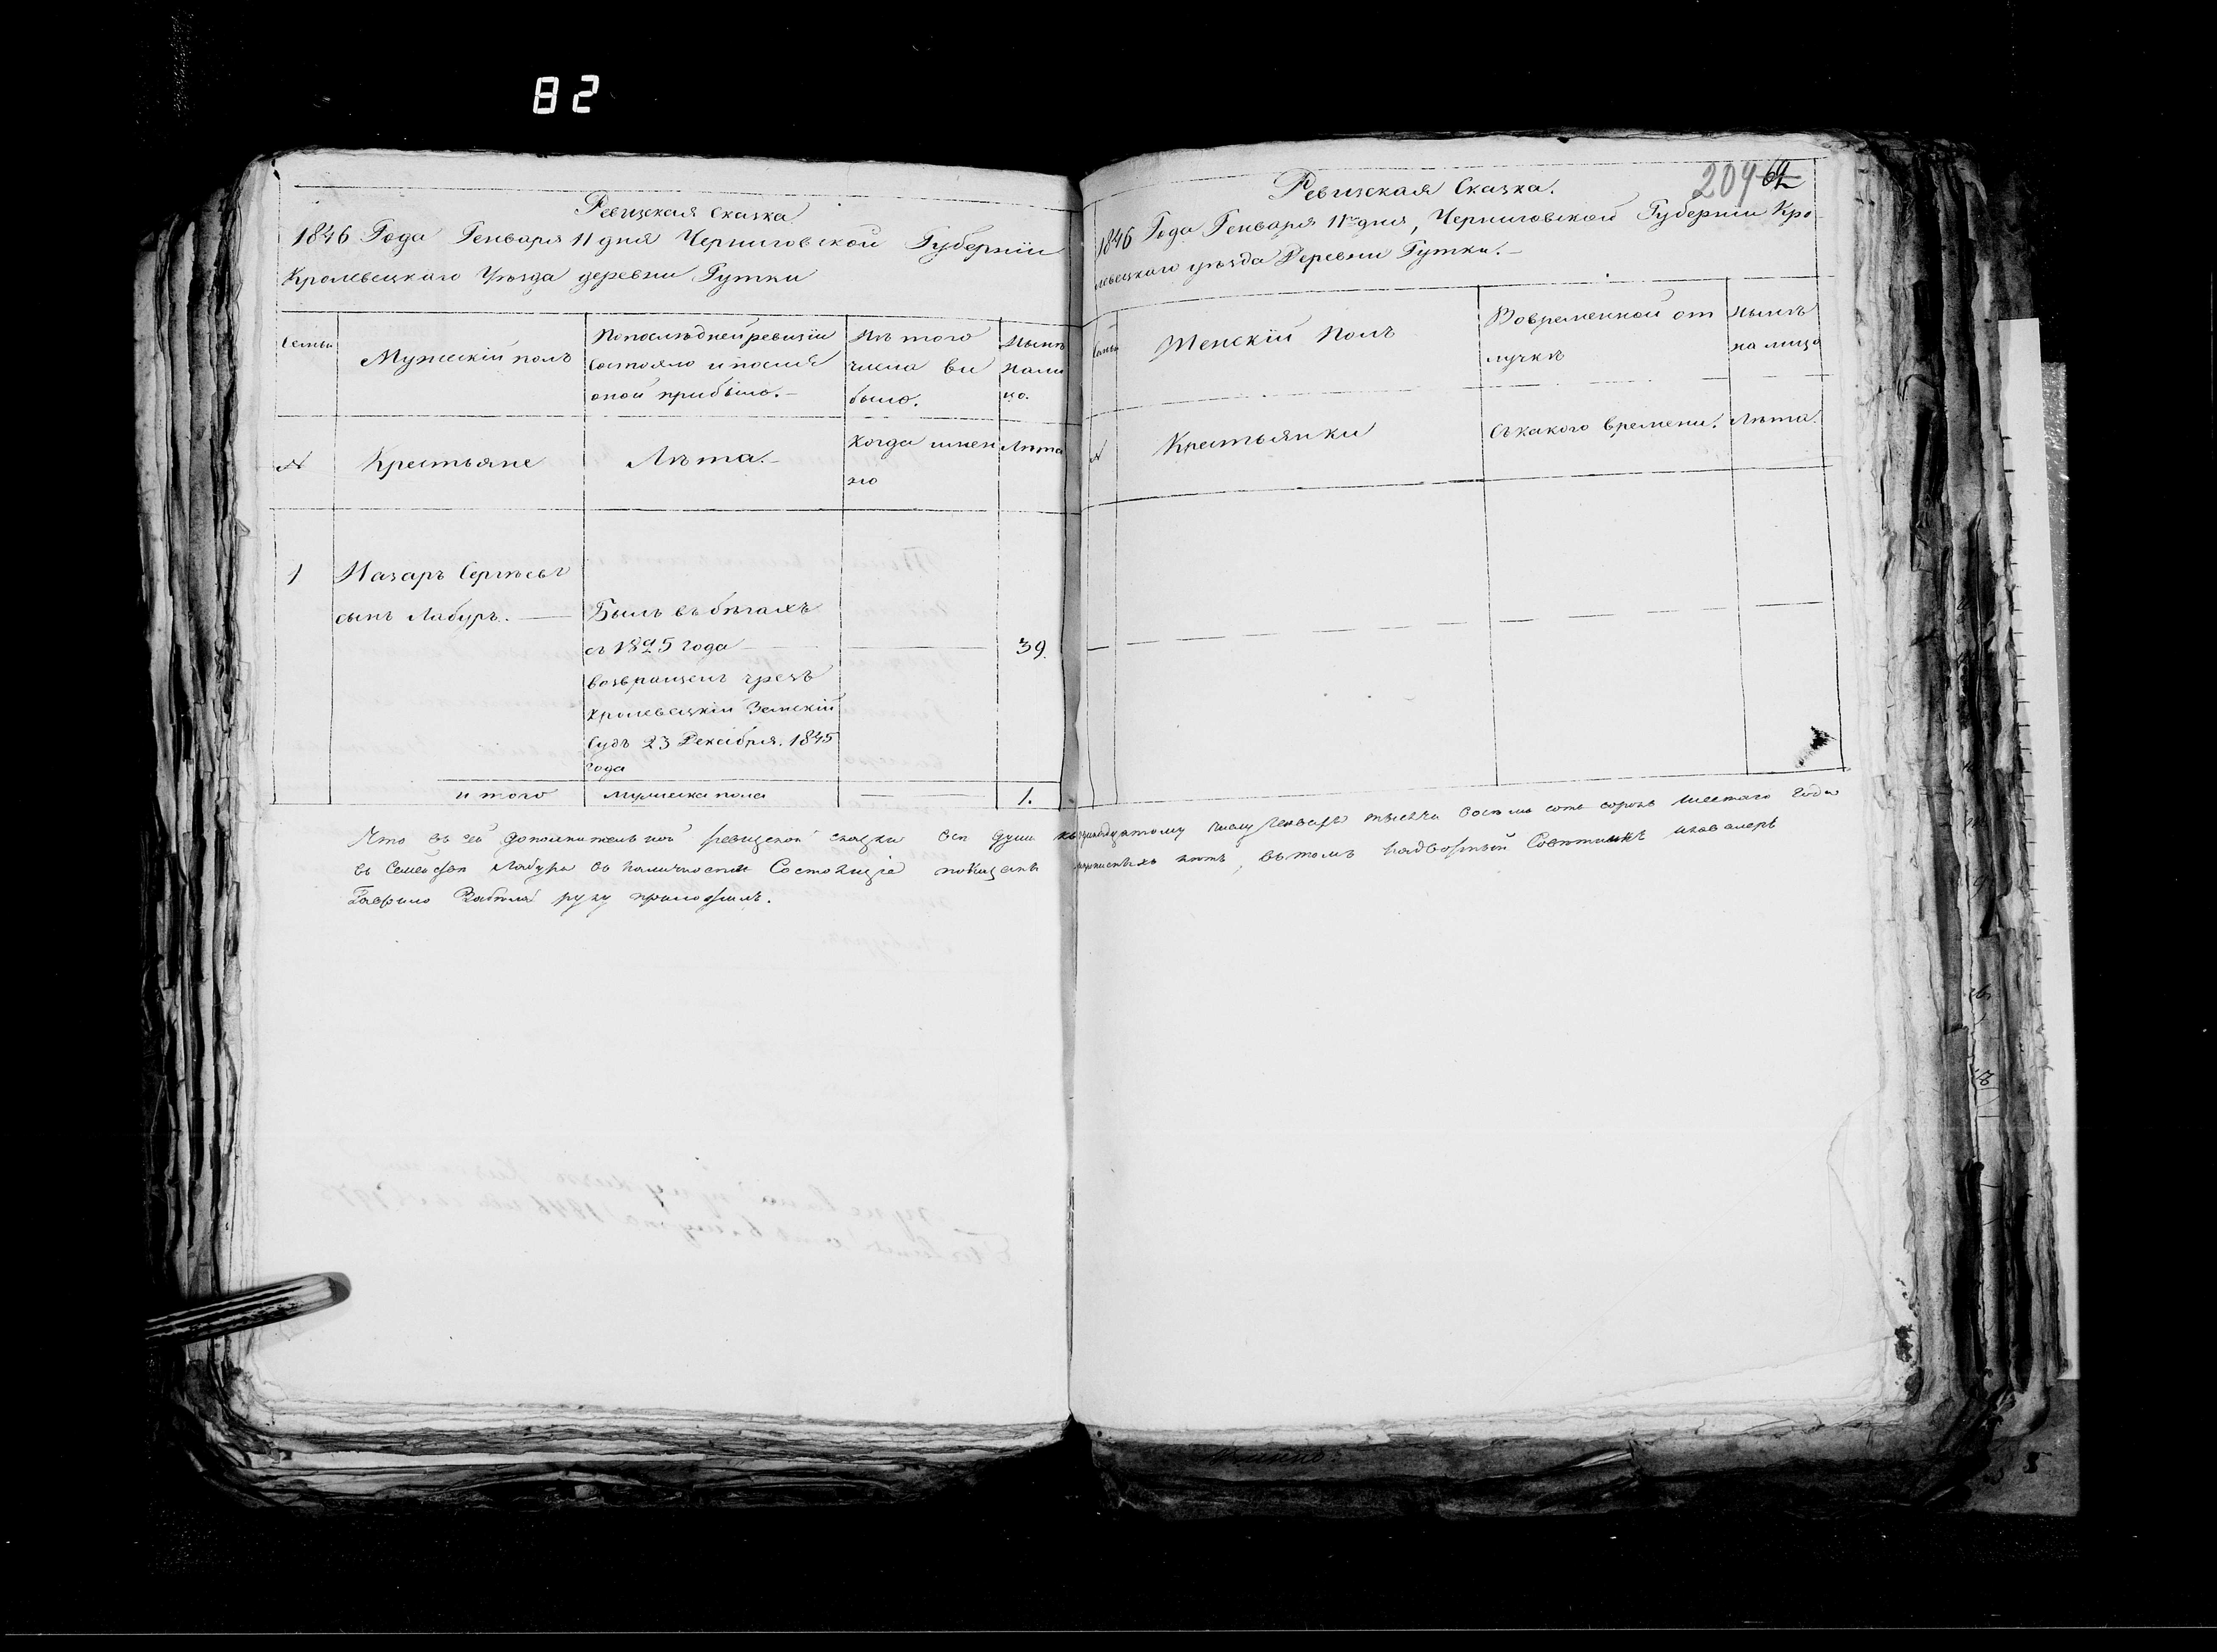 82
Ревизская сказка
1846 Года Генваря 11 дня Черниговской Губернiи
Кролевецкаго Уѣзда деревни Гутки
Семьи
Мужескiй полъ
По последней ревизiи
состояло и после
оной прибыло.
Изъ того
числа вы
было.
Нынѣ
нали
цо.
№
Крестьяне
Лѣта.
Когда имен
но
Лѣта
1
Назаръ Сергѣевъ
сынъ Лабуръ.
Былъ въ бѣгахъ
съ 1825 года
возвращенъ чрезъ
Кролевецкiй Земскiй
Судъ 23 Декабря. 1845
года
39.
и того
мужеска пола
1.
204 64
Ревизская Сказка.
1846 Года Генваря 11го дня, Черниговской Губернiи Кро
левецкаго уѣзда Деревни Гутки.
Семьи
Женскiй Полъ
Во временной от
лучкѣ
Нынѣ
на лицо
№
Крестьянки
Съ какого времени.
Лѣта.
Что въ сей дополнительной ревизской сказки все души числу Генваря тысяча восемь сотъ сорокъ шестаго года
въ Семействѣ Лабура въ наличности Состоящiе показаны нетъ, въ томъ надворный Советникъ и кавалеръ
Гаврило руку приложилъ.